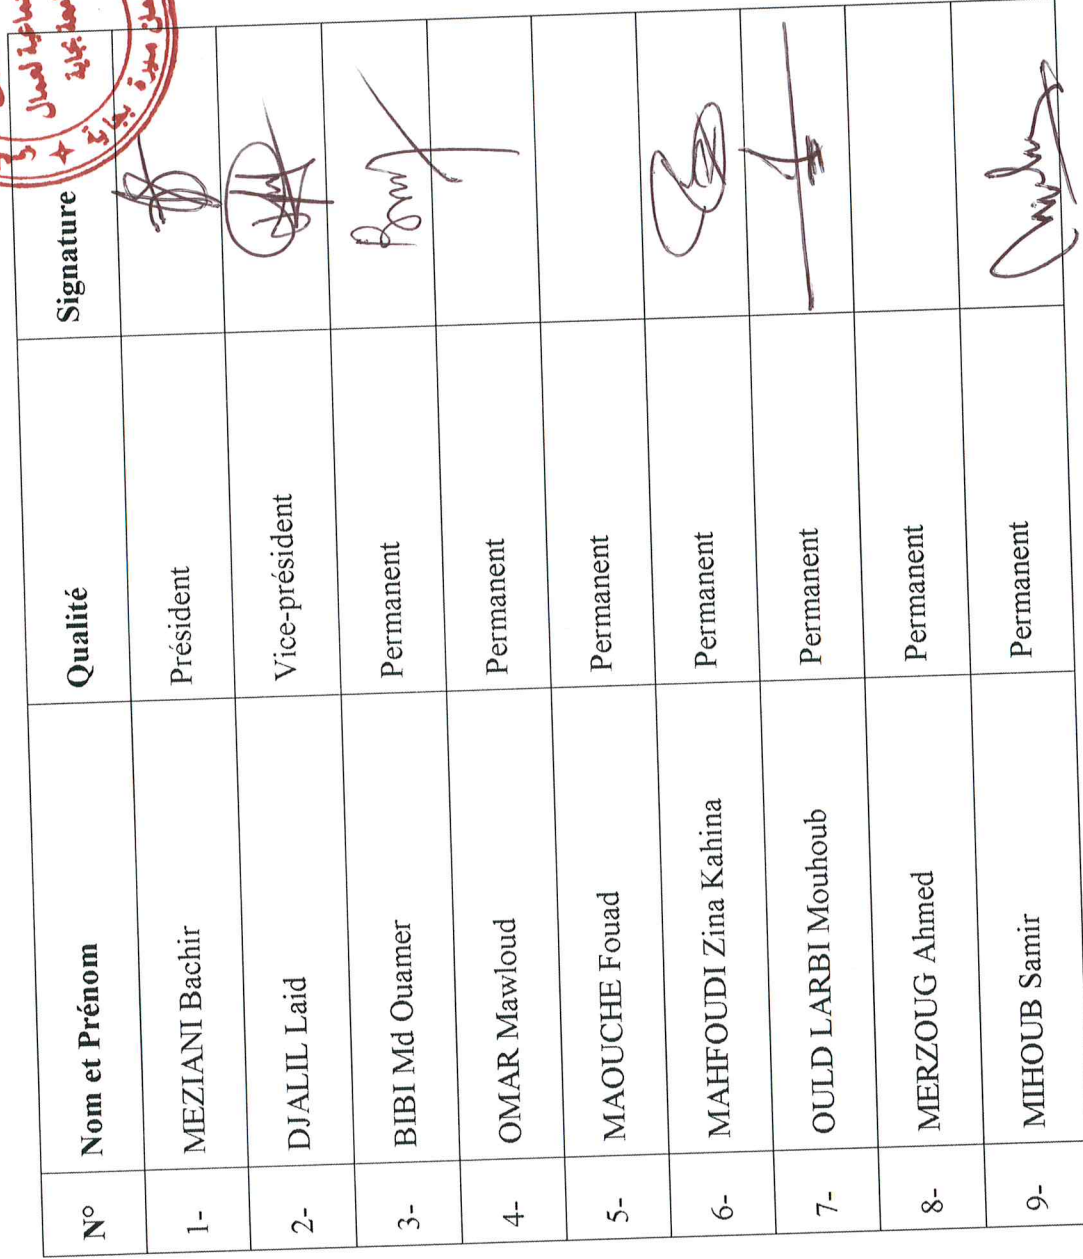 N° Nom et Prénom Qualité Signature
1- MEZIANI Bachir Président
2- DJALIL Laid Vice-président
3- BIBI Md Ouamer Permanent
4- OMAR Mawloud Permanent
5- MAOUCHE Fouad Permanent
6- MAHFOUDI Zina Kahina Permanent
7- OULD LARBI Mouhoub Permanent
8- MERZOUG Ahmed Permanent
9- MIHOUB Samir Permanent
لعمال
بجاية
ميرة بجاية